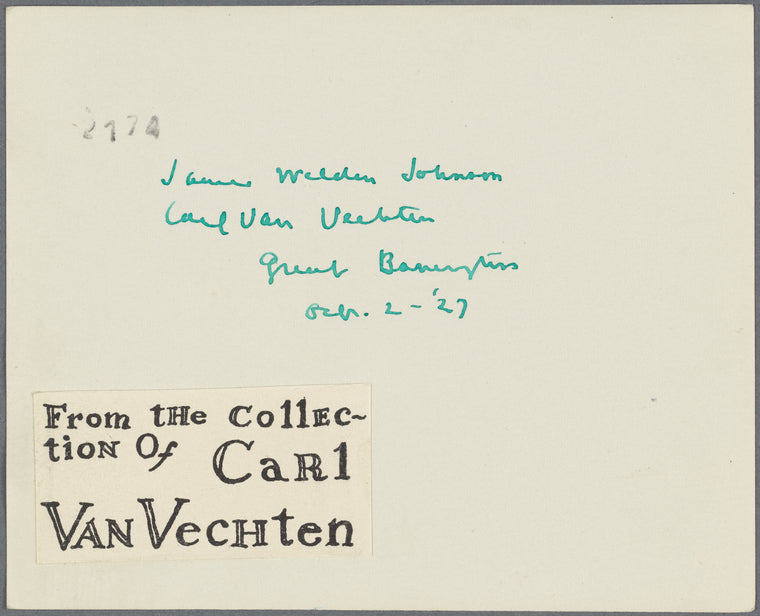 2974
James Weldon Johnson
Carl Van Vechten
Great Barrington
Oct. 2-'27
From the Collec~
tion Of Carl
Van Vechten